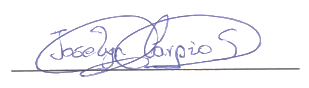 Joselyn Carpio S